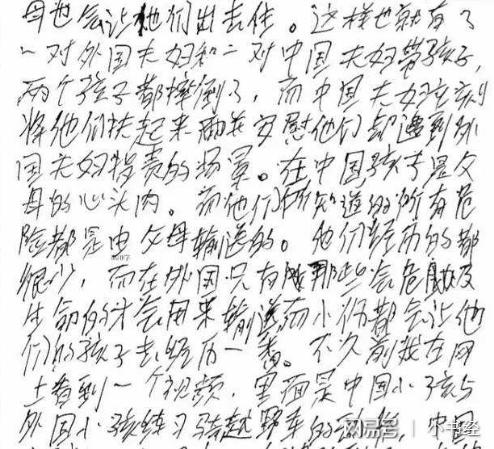 母也会让他们出去住。这样也就有了
一对外国夫妇和一对中国夫妇带孩子,
两个孩子都摔倒了,而中国夫妇立刻
将他们扶起来而并安慰他们却遭到外
国夫妇指责的场景。在中国孩子是父
母的心头肉。而他们所知道的所有危
险都是由父母输送的。他们经历的都
很少,而在外国只有那些会危及
生命的才会用来输送而小伤都会让他
们的孩子去经历一番。不久前我在网
上看到一个视频,里面是中国小孩与
外国小孩练习骑越野车的 中国
网易号 | 小书经